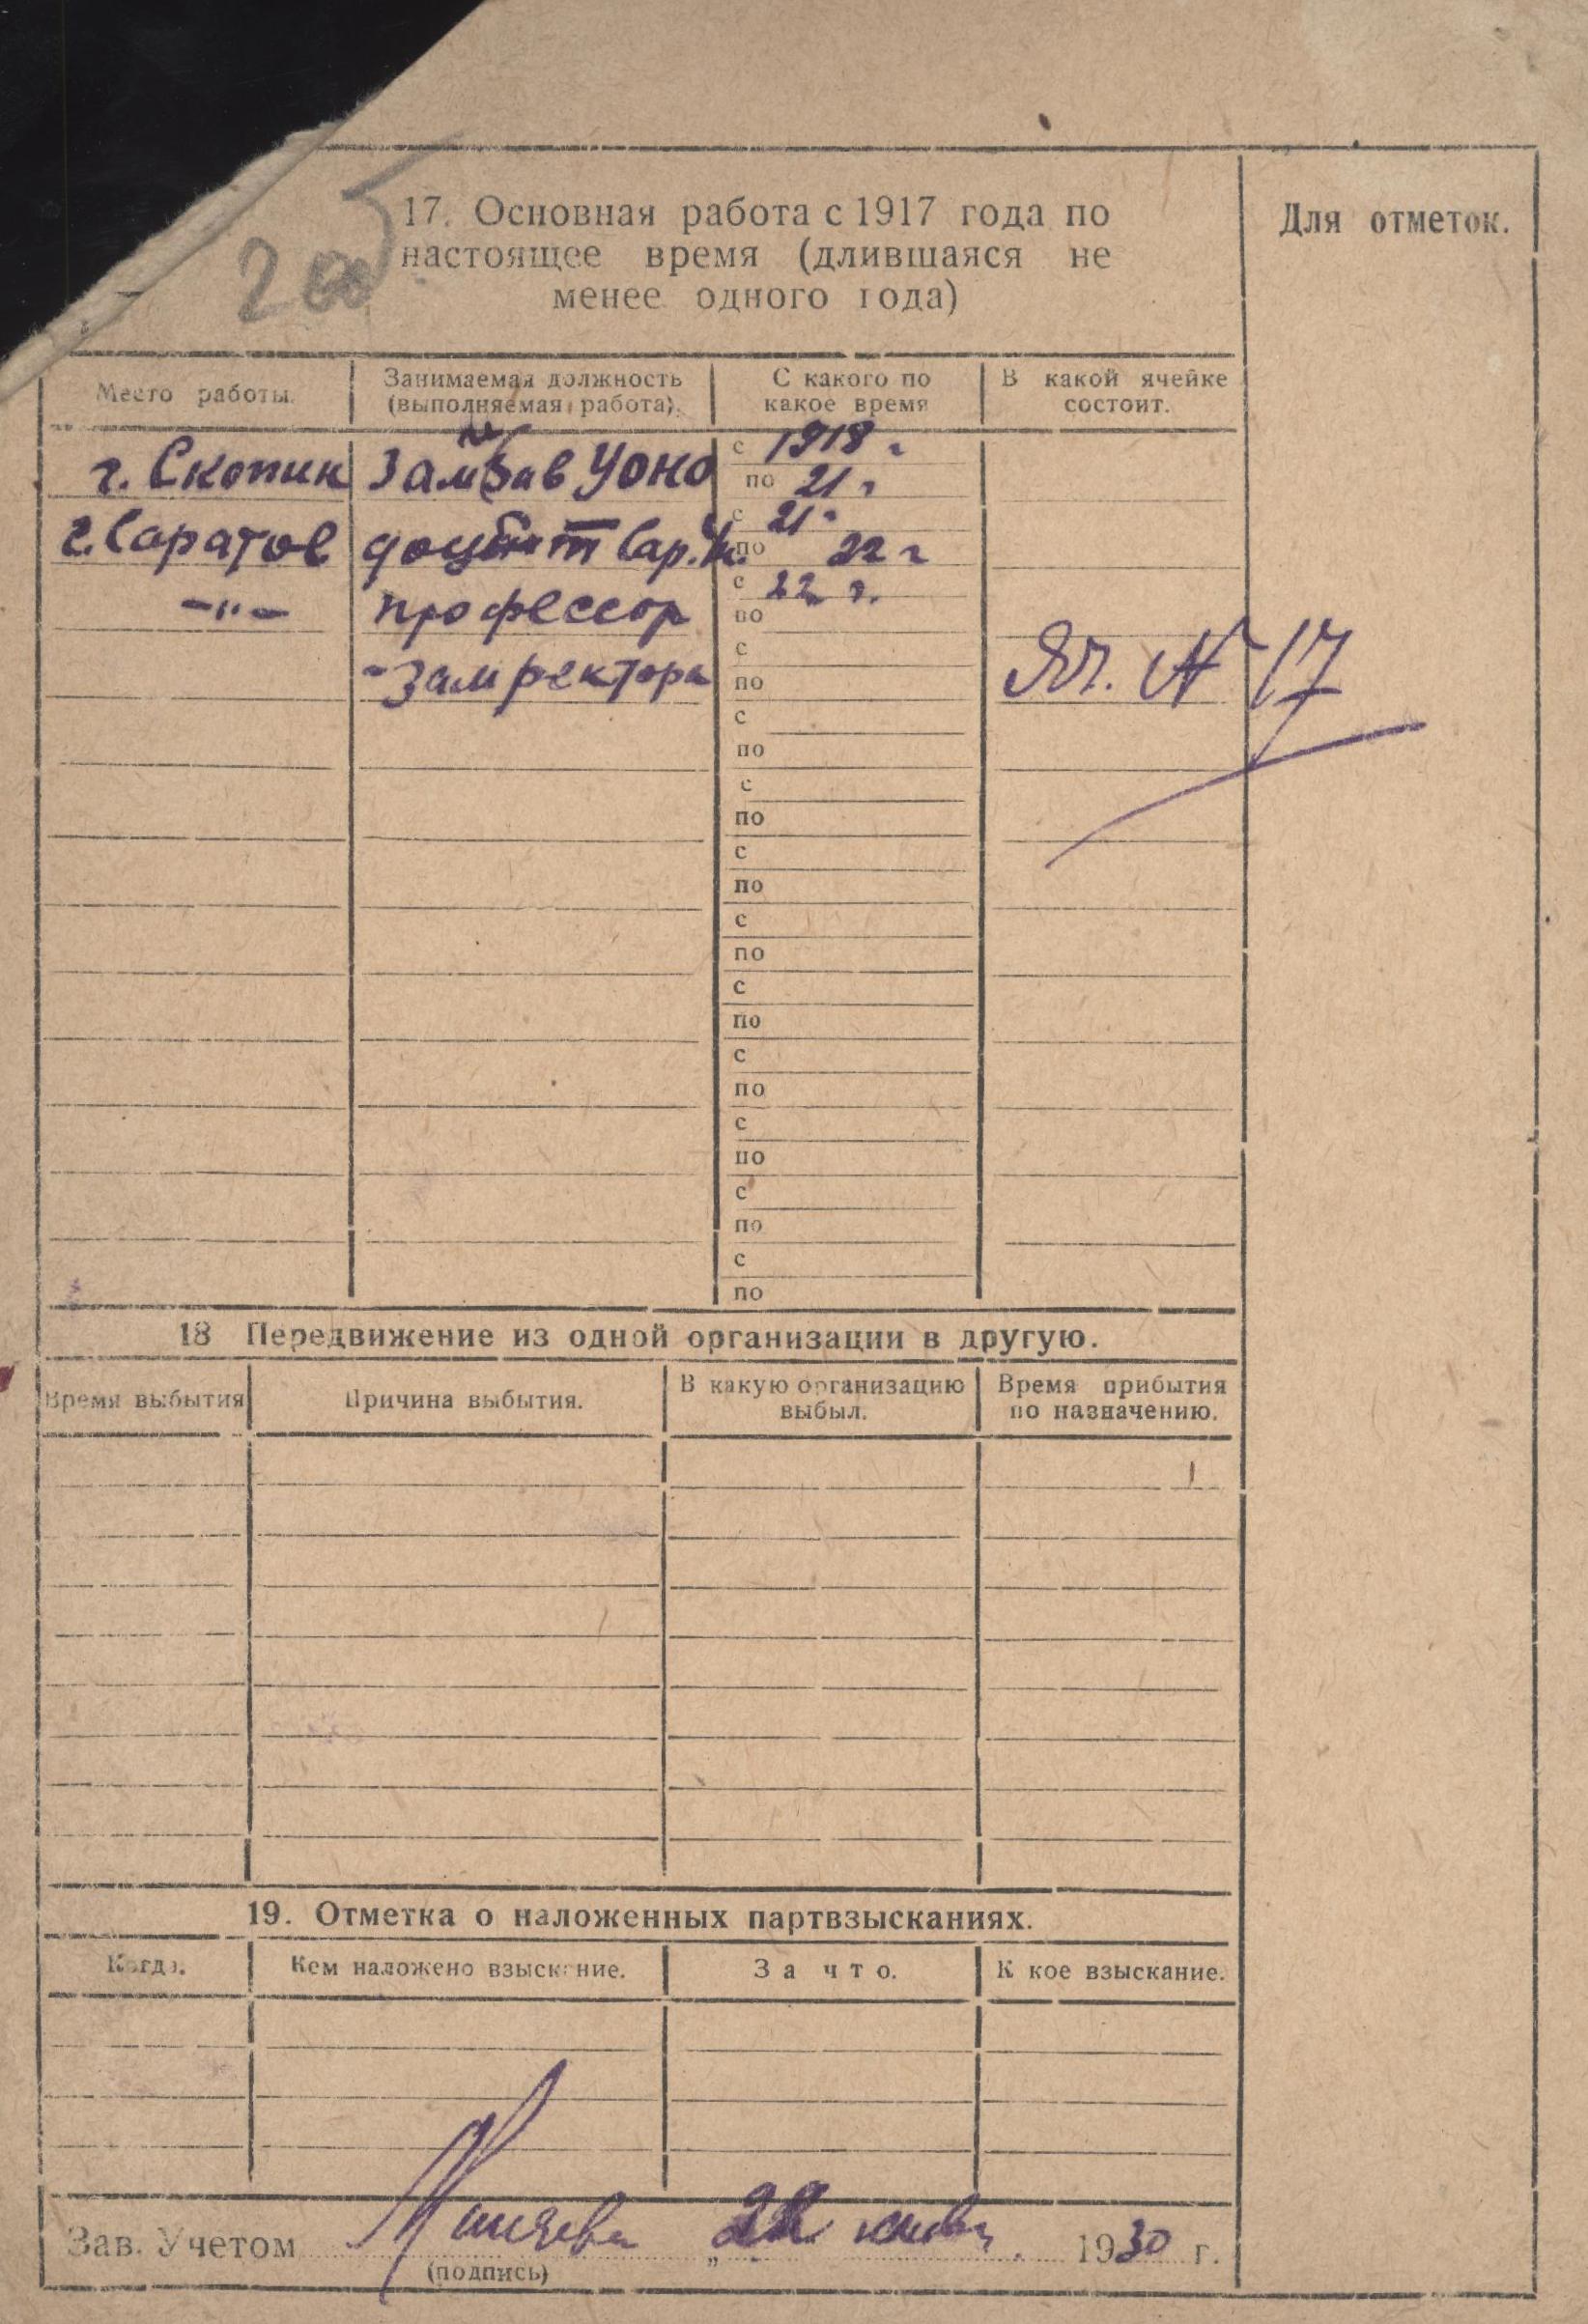 17. Основная работа с 1917 года по
настоящее время (длившаяся не
менее одного года)
Для отметок.
Место работы.
Занимаемая должность
(выполняемая работа).
С какого по
какое время
В какой ячейке
состоит.
г. Скопин ЗамЗав Уоно с 1918 г
по 21 г
г. Саратов доцент Сар. с 21 г
по 22 г
-"- профессор с 22 г.
по
-Зам ректора с
по
Яч. № 17
с
по
с
по
с
по
с
по
с
по
с
по
с
по
с
по
с
по
18 Передвижение из одной организации в другую.
Время выбытия
Причина выбытия.
В какую организацию
выбыл.
Время прибытия
по назначению.
19. Отметка о наложенных партвзысканиях.
Когда.
Кем наложено взыскание.
За что.
К кое взыскание.
Зав. Учетом „ 22 1930 г.
(подпись)